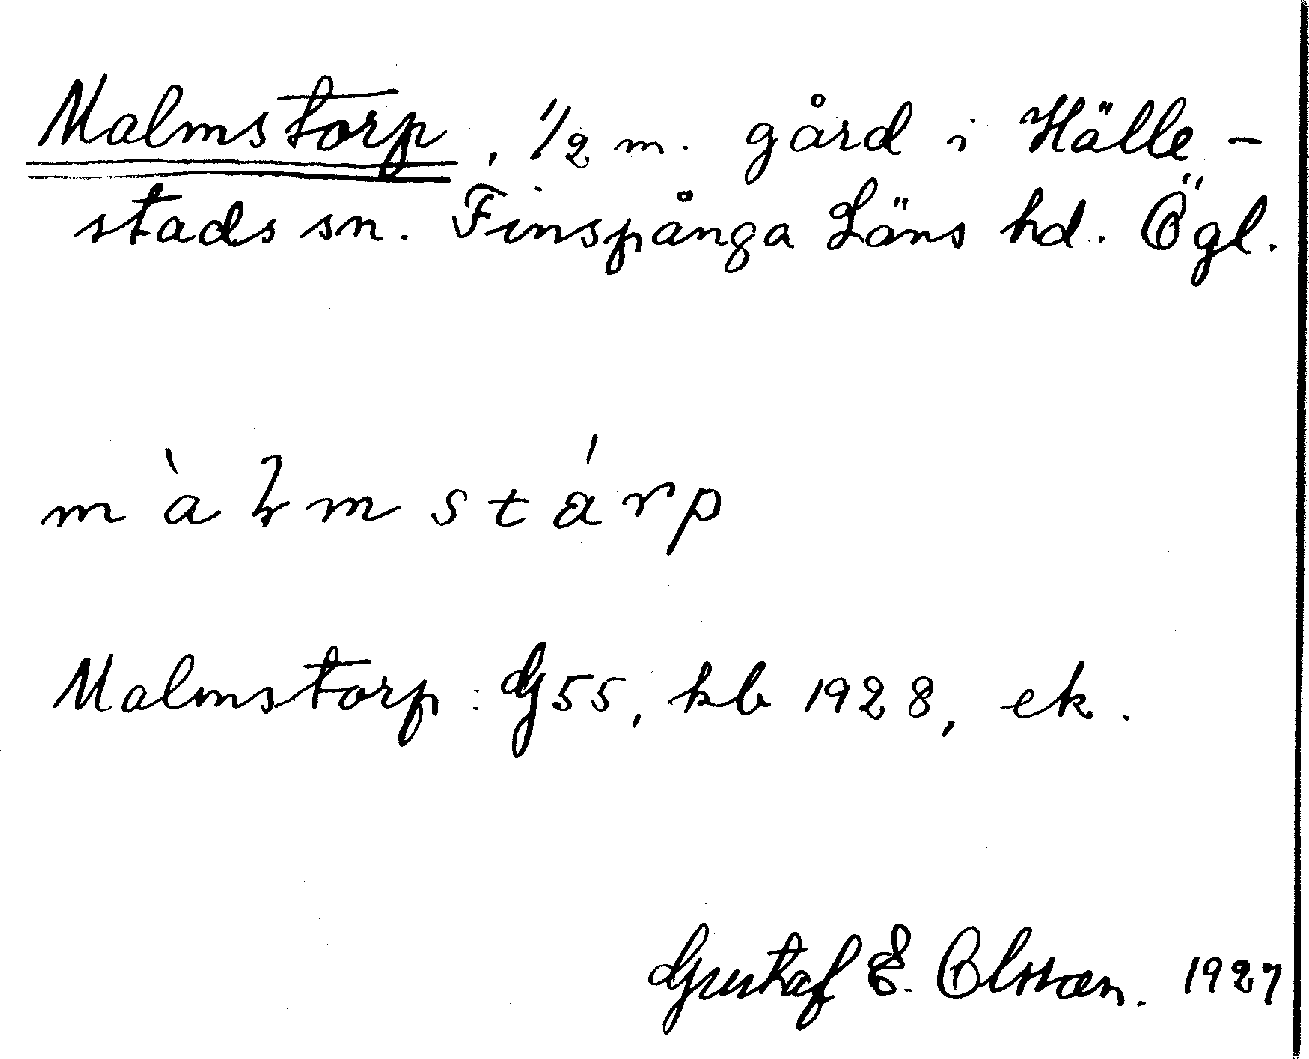 Malmstorp, 1/2 m. gård i Hälle-
stads sn. Finspånga Läns hd. Ögl.
màɫmstárp
Malmstorp: G55, kb 1928, ek.
Gustaf E. Olsson. 1927